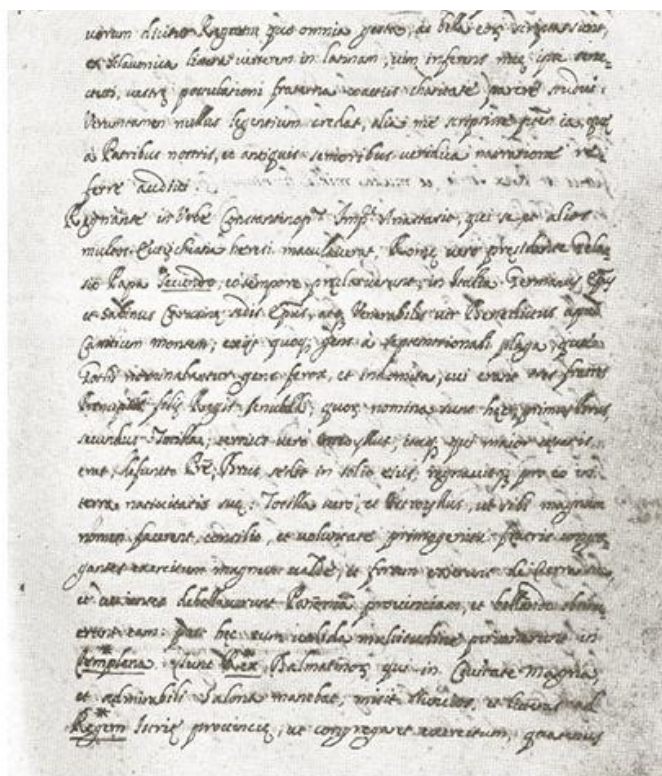 uerum dicitur Regnum que omnia gesta, ac bella eorum scripta sunt,
ex sclauonica littera uerterem in latinam, uim inferens meę ipse senec-
tuti, uestrę postulationi fraterna coactus charitate, parere studui.
Veruntamen nullus legentium credat, alia me scripsisse pręter ea, quę
à Patribus nostris, et antiquis senioribus ueridica narratione re-
ferre audiui
Regnante in Vrbe Imp. Anastasio, qui se et alios
multos Eutychiana heresi maculauerat, Romę uero presidente Gela-
sio Papa Secundo, eo tempore pręclaruerunt in Italia Germanus Epus
et Sabinus sedis Epus, atq Venerabilis uir Benedictus apud
montem; exijt quoq gens à septentrionali plaga, quę
Gothi nominabantur gens ferox, et indomita, cui erant tres fratres
Principes filij Regis quor nomina sunt hęc, primus Brus,
secundus Totilla, tertius uero brus, qui maior
erat, defuncto Pre, Brus sedit in solio eius, regnauitq pro eo in
terra natiuitatis suę: Totilla uero, et ut sibi magnum
nomen facerent, consilio, et uoluntate primogeniti fratris congre-
gantes exercitum magnum ualde, et fortem exierunt de terra sua,
et debellauerunt prouinciam, et bellando obtinu-
erunt eam: post hęc cum ualida multitudine in
Templana. Tunc Rex Dalmatinor qui in Ciuitate magna,
et admirabili Salona manebat, misit nuncios, et literas ad
Regem Istrię prouincię, ut congregaret exercitum, quatenus